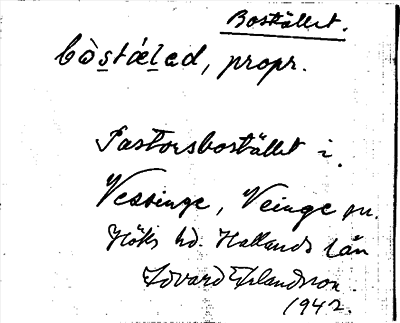 Bostället.
bòstálad, propr.
Pastorsbostället i
Vessinge, Veinge sn.
Höks hd. Hallands län
Edvard
1942.